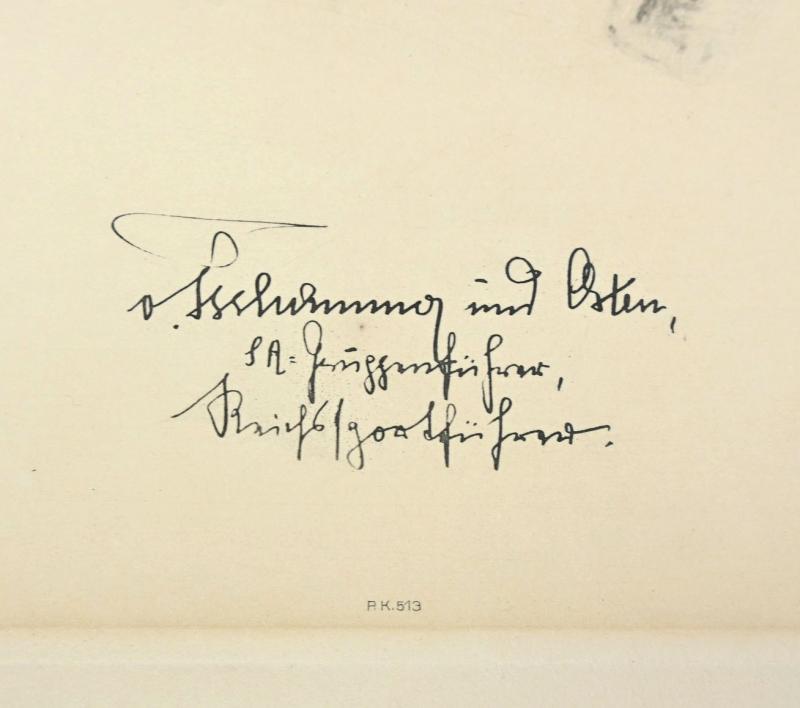 v. Tschammer und Osten,
SA=Gruppenführer,
Reichssportführer.
P.K.513